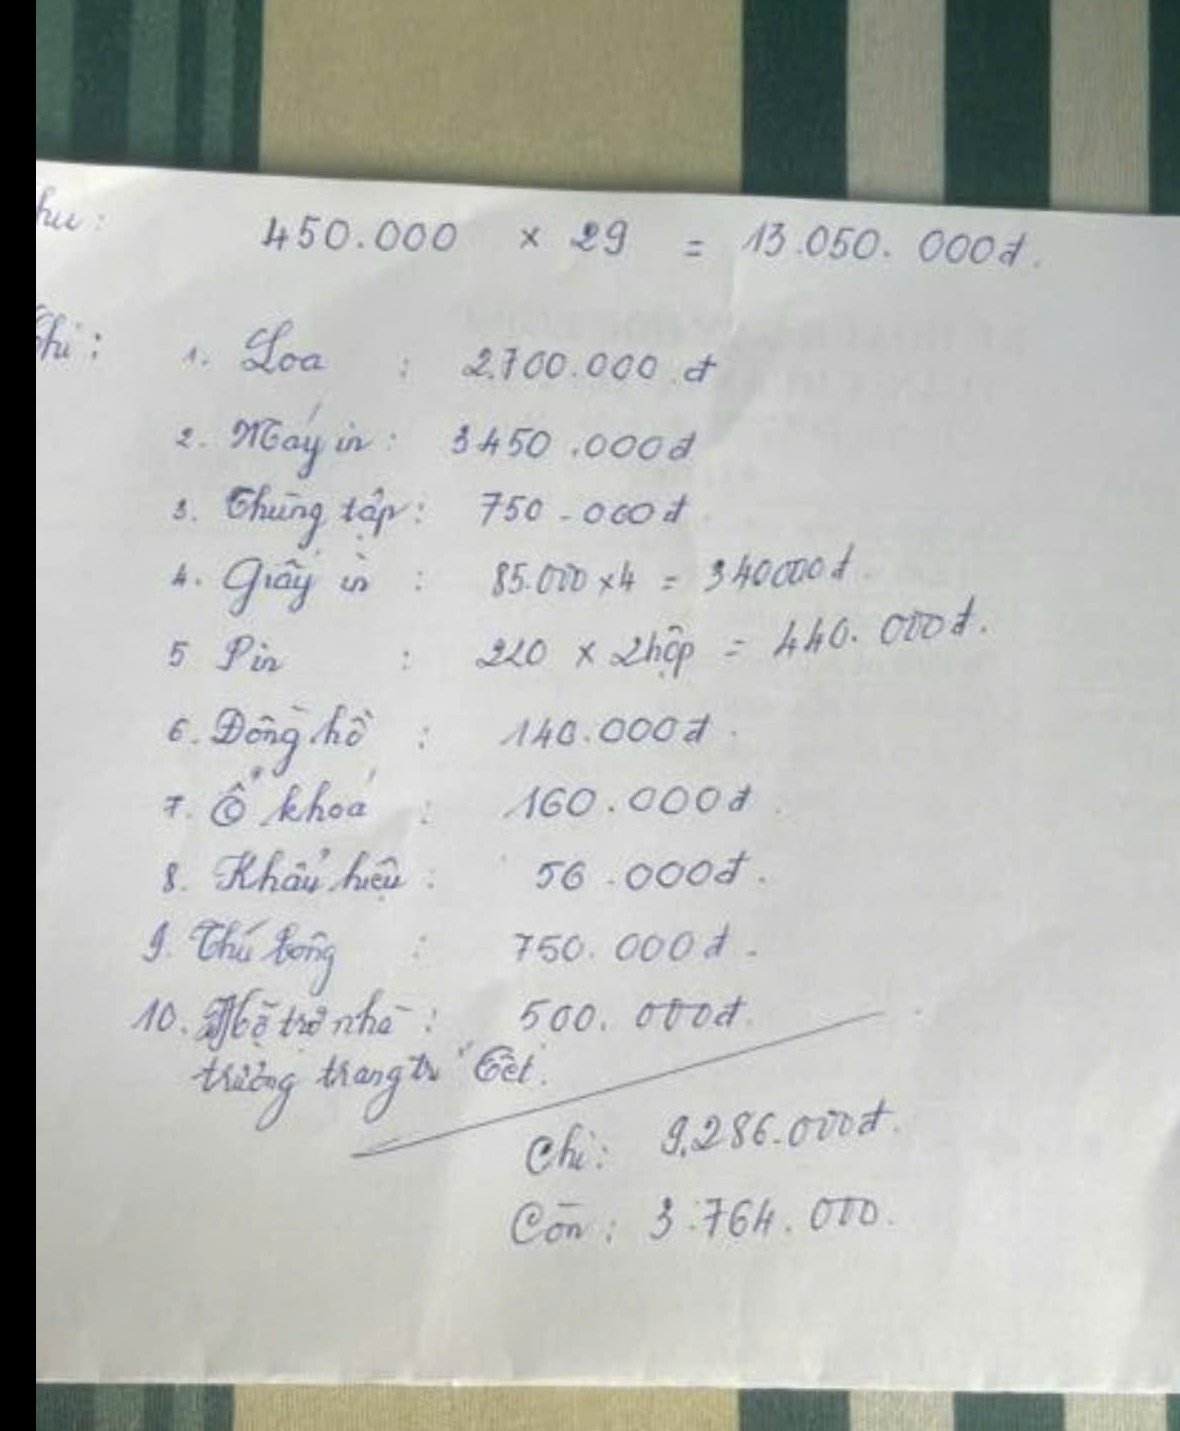 Thu: 450.000 × 29 = 13.050.000đ.
Chi: 1. Loa : 2.700.000.đ
2. Máy in: 3450.000đ
3. Thùng tập: 750.000đ
4. Giấy in : 85.000 × 4 = 340000đ.
5 Pin : 220 × 2hộp = 440.000đ.
6. Đồng hồ : 140.000đ.
7. Ổ khoá : 160.000đ
8. Khẩu hiệu : 56.000đ.
9. Thú bông : 750.000đ.
10. Hỗ trợ nhà : 500.000đ.
trường trang trí Tết.
Chi: 9.286.000đ.
Còn: 3.764.000.